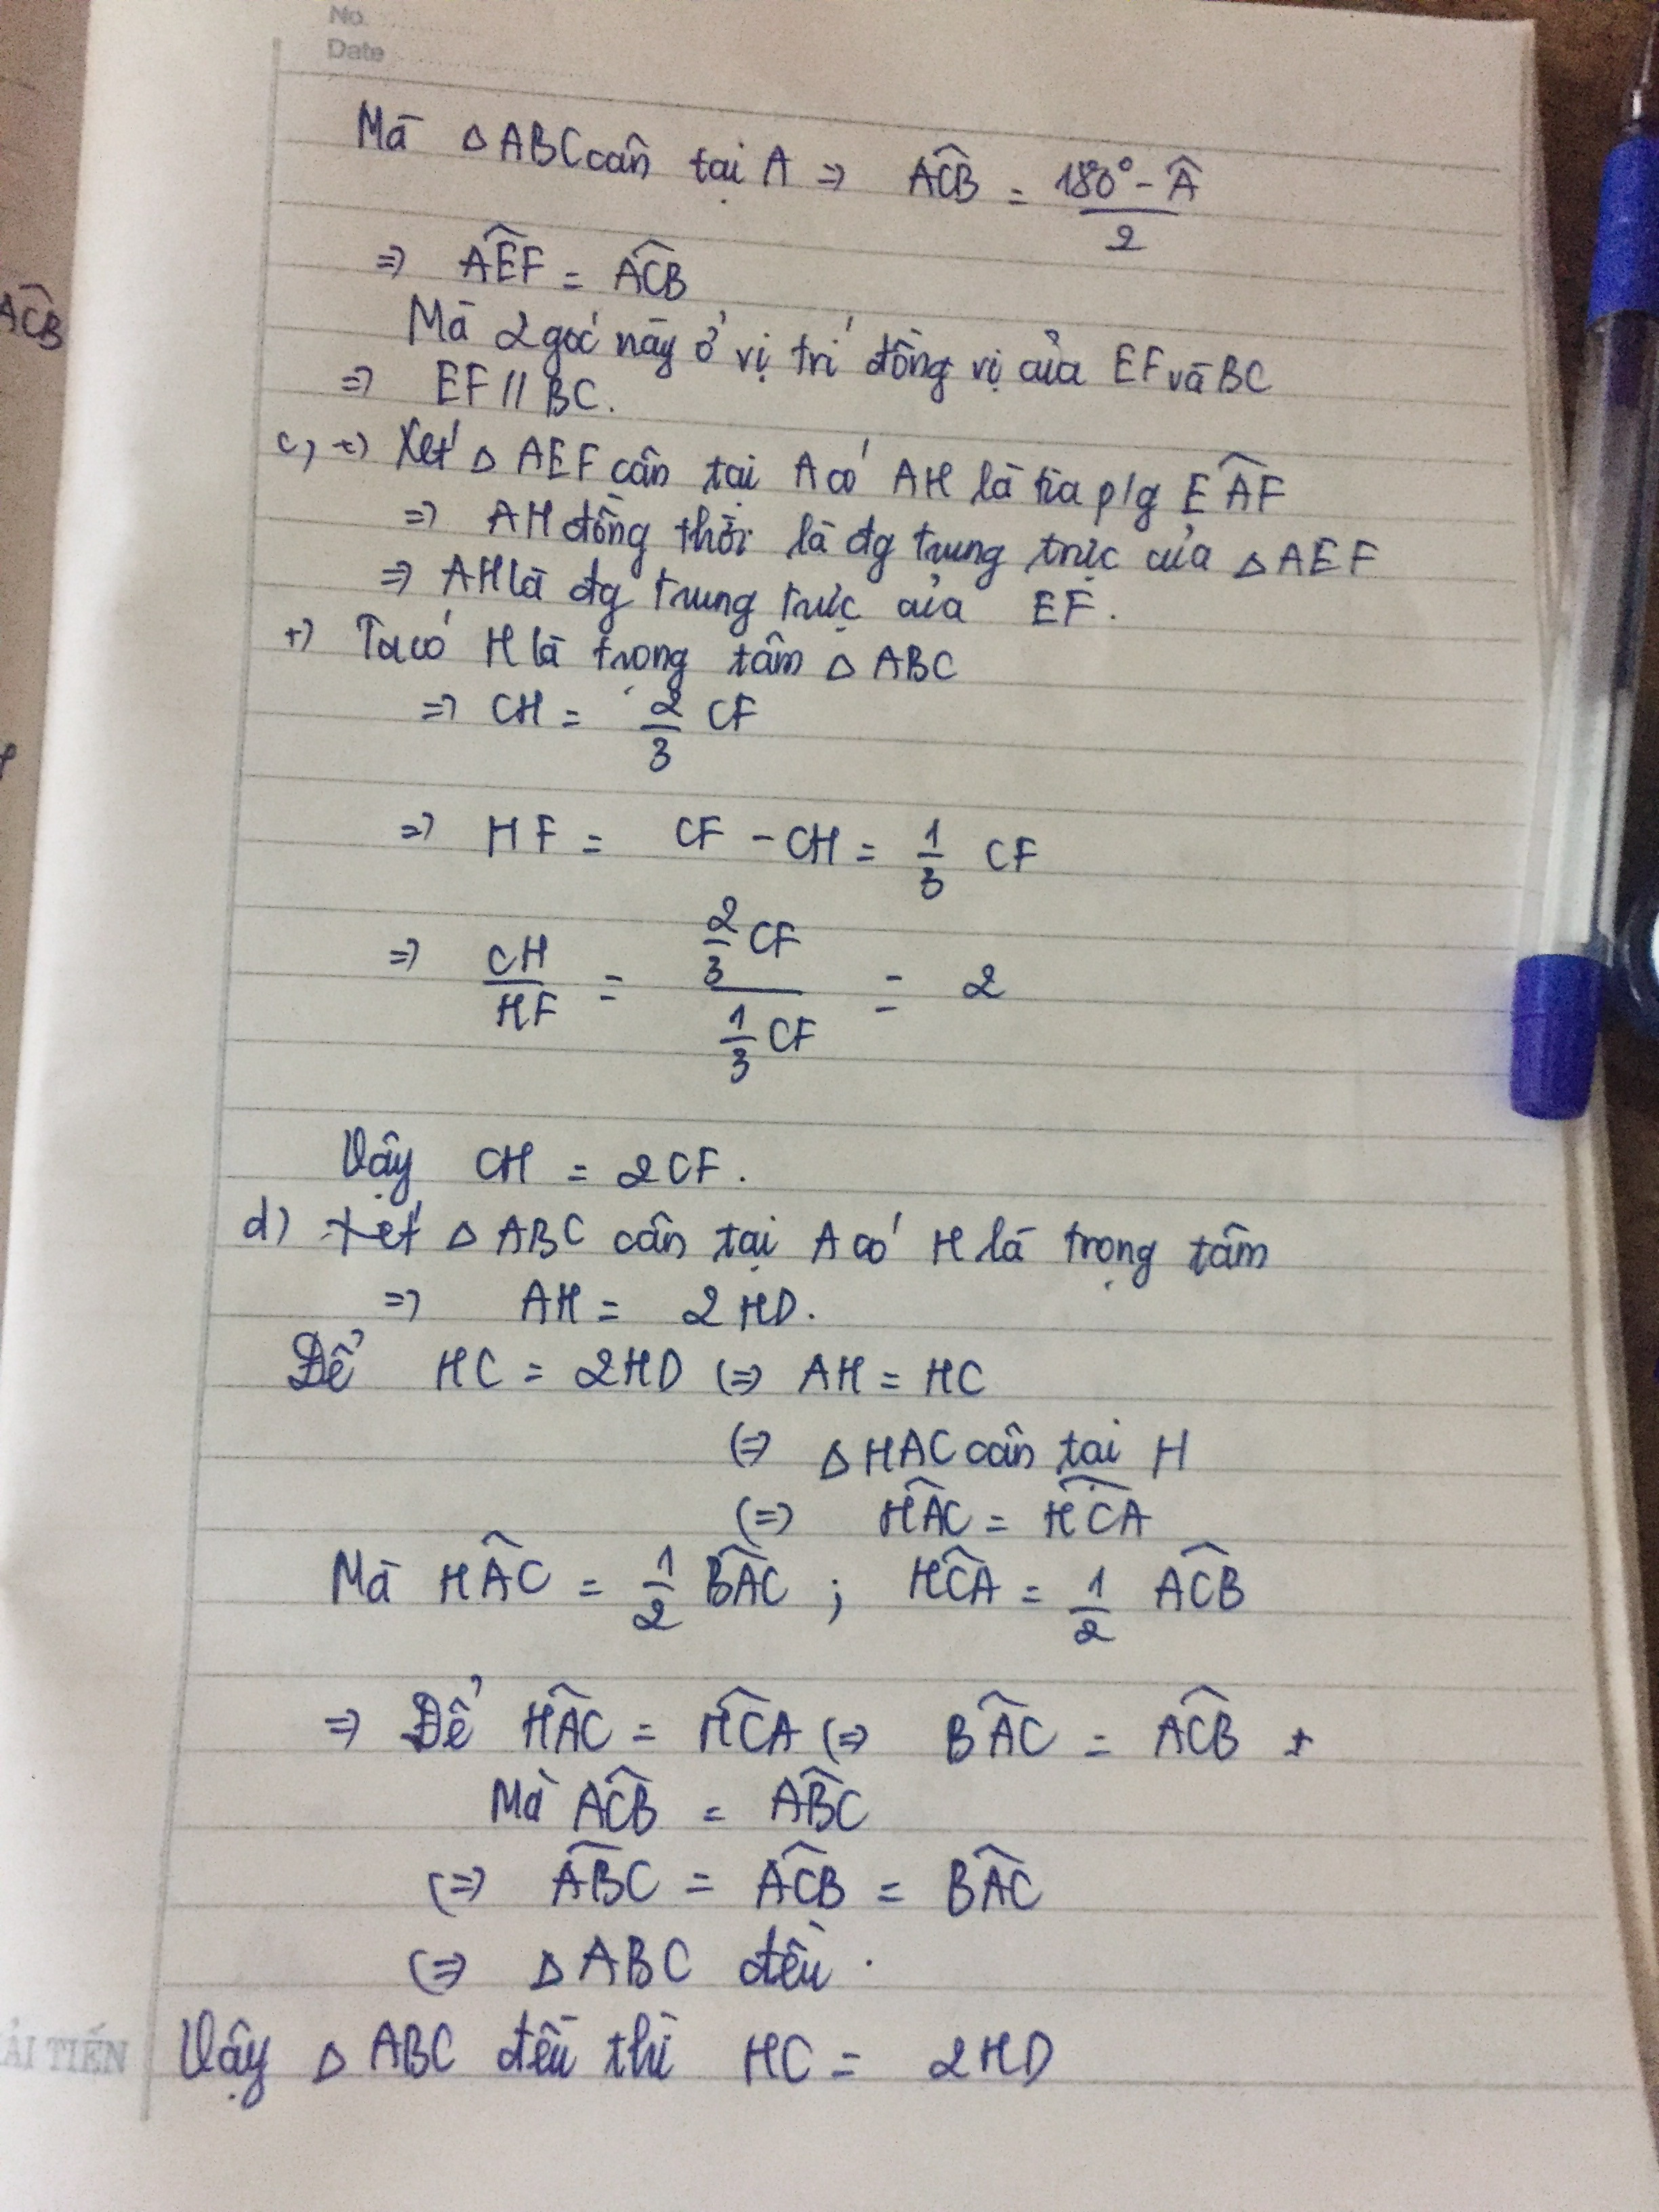 No.
Date
Mà △ABC cân tại A ⇒ $\widehat{ACB} = \frac{180° - \widehat{A}}{2}$
⇒ $\widehat{AEF} = \widehat{ACB}$
$\widehat{ACB}$
Mà 2 góc này ở vị trí đồng vị của EF và BC
⇒ EF // BC.
c, +) Xét △AEF cân tại A có AH là tia p/g $\widehat{EAF}$
⇒ AH đồng thời là đg trung trực của △AEF
⇒ AH là đg trung trực của EF.
+) Ta có H là trọng tâm △ABC
⇒ CH = $\frac{2}{3}$ CF
⇒ HF = CF - CH = $\frac{1}{3}$ CF
⇒ $\frac{CH}{HF} = \frac{\frac{2}{3}CF}{\frac{1}{3}CF} = 2$
Vậy CH = 2CF.
d) Xét △ABC cân tại A có H là trọng tâm
⇒ AH = 2HD.
Để HC = 2HD (⇒ AH = HC
(⇒ △HAC cân tai H
(⇒) $\widehat{HAC} = \widehat{HCA}$
Mà $\widehat{HAC} = \frac{1}{2} \widehat{BAC}$ ; $\widehat{HCA} = \frac{1}{2} \widehat{ACB}$
⇒ Để $\widehat{HAC} = \widehat{HCA}$ (⇒ $\widehat{BAC} = \widehat{ACB}$
Mà $\widehat{ACB} = \widehat{ABC}$
(⇒) $\widehat{ABC} = \widehat{ACB} = \widehat{BAC}$
(⇒ △ABC đều.
Vậy △ABC đều thì HC = 2HD
ẢI TIẾN